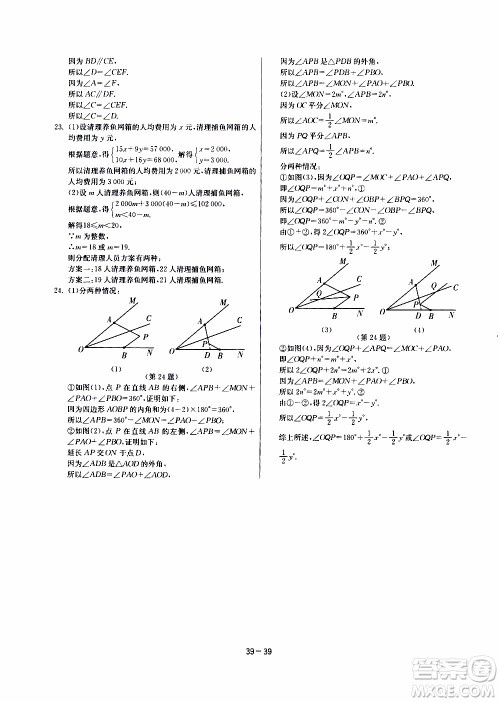 因为 BD∥CE,
所以∠D=∠CEF.
因为∠A=∠F,
所以 AC∥DF.
所以∠C=∠CEF.
所以∠C=∠D.
23. (1)设清理养鱼网箱的人均费用为 x 元,清理捕鱼网箱的人
均费用为 y 元.
根据题意,得{15x+9y=57 000, 10x+16y=68 000. 解得{x=2 000, y=3 000.
所以清理养鱼网箱的人均费用为 2 000 元,清理捕鱼网箱的
人均费用为 3 000 元;
(2)设 m 人清理养鱼网箱,则(40-m)人清理捕鱼网箱.
根据题意,得{2 000m+3 000(40-m)≤102 000, m<40-m.
解得18≤m<20.
∵m 为整数,
∴m=18 或 m=19.
则分配清理人员方案有两种:
方案一:18 人清理养鱼网箱,22 人清理捕鱼网箱.
方案二:19 人清理养鱼网箱,21 人清理捕鱼网箱.
24. (1)分两种情况:
M
A
C
P
O
B
N
(1)
M
A
C
P
O
D
B
N
(2)
(第 24 题)
①如图(1),点 P 在直线 AB 的右侧,∠APB+∠MON+
∠PAO+∠PBO=360°.
因为四边形 AOBP 的内角和为(4-2)×180°=360°,
所以∠APB=360°-∠MON-∠PAO-∠PBO;
②如图(2),点 P 在直线 AB 的左侧,∠APB=∠MON+
∠PAO+∠PBO.理由如下:
延长 AP 交 ON 于点 D.
因为∠ADB 是△AOD 的外角,
所以∠ADB=∠PAO+∠AOD.
因为∠APB 是△PDB 的外角,
所以∠APB=∠PDB+∠PBO.
所以∠APB=∠MON+∠PAO+∠PBO.
(2)设∠MON=2m°,∠APB=2n°.
因为 OC 平分∠MON,
所以∠AOC=1/2∠MON=m°.
因为 PQ 平分∠APB,
所以∠APQ=1/2∠APB=n°.
分两种情况:
①如图(3),因为∠OQP=∠MOC+∠PAO+∠APQ,
即∠OQP=m°+x°+n°,①
因为∠OQP+∠CON+∠OBP+∠BPQ=360°,
所以∠OQP=360°-∠CON-∠OBP-∠BPQ,
即∠OQP=360°-m°-y°-n°,②
由①+②,得 2∠OQP=360°+x°-y°,
所以∠OQP=180°+1/2x°-1/2y°;
M
A
C
Q
P
O
B
N
(3)
M
A
Q
C
P
O
D
B
N
(4)
(第 24 题)
②如图(4),因为∠OQP+∠APQ=∠MOC+∠PAO,
即∠OQP+n°=m°+x°,
所以 2∠OQP+2n°=2m°+2x°.①
因为∠APB=∠MON+∠PAO+∠PBO,
所以 2n°=2m°+x°+y°.②
由①-②,得 2∠OQP=x°-y°,
所以∠OQP=1/2x°-1/2y°.
综上所述,∠OQP=180°+1/2x°-1/2y°或∠OQP=1/2x°-
1/2y°.
39-39